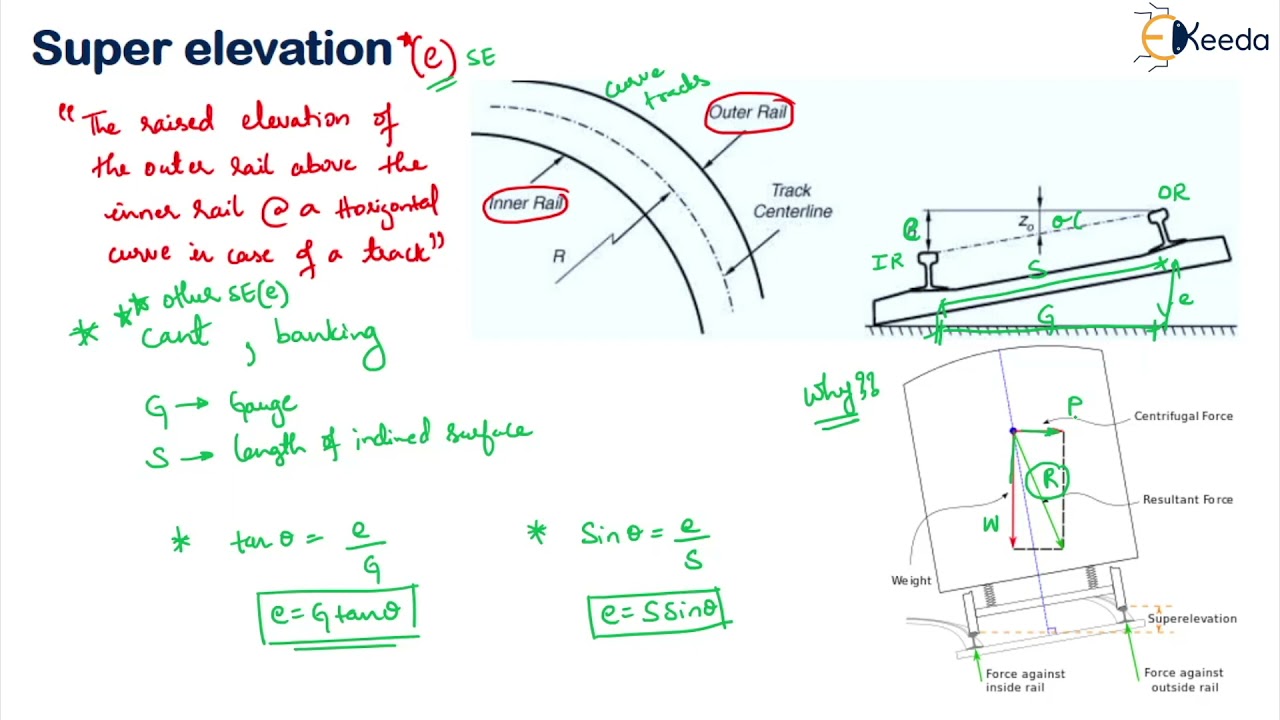 Super elevation *(e) SE
EKeeda
"The raised elevation of
the outer rail above the
inner rail @ a Horizontal
curve in case of a track"
other SE(e)
cant, banking
G → Gauge
S → length of inclined surface
* tan θ = e/G
e = G tan θ
* Sin θ = e/S
e = S sin θ
curve
tracks
Outer Rail
Inner Rail
Track
Centerline
R
OR
IR
Z₀
S
G
e
Why??
P
Centrifugal Force
R
Resultant Force
W
Weight
Superelevation
Force against
inside rail
Force against
outside rail